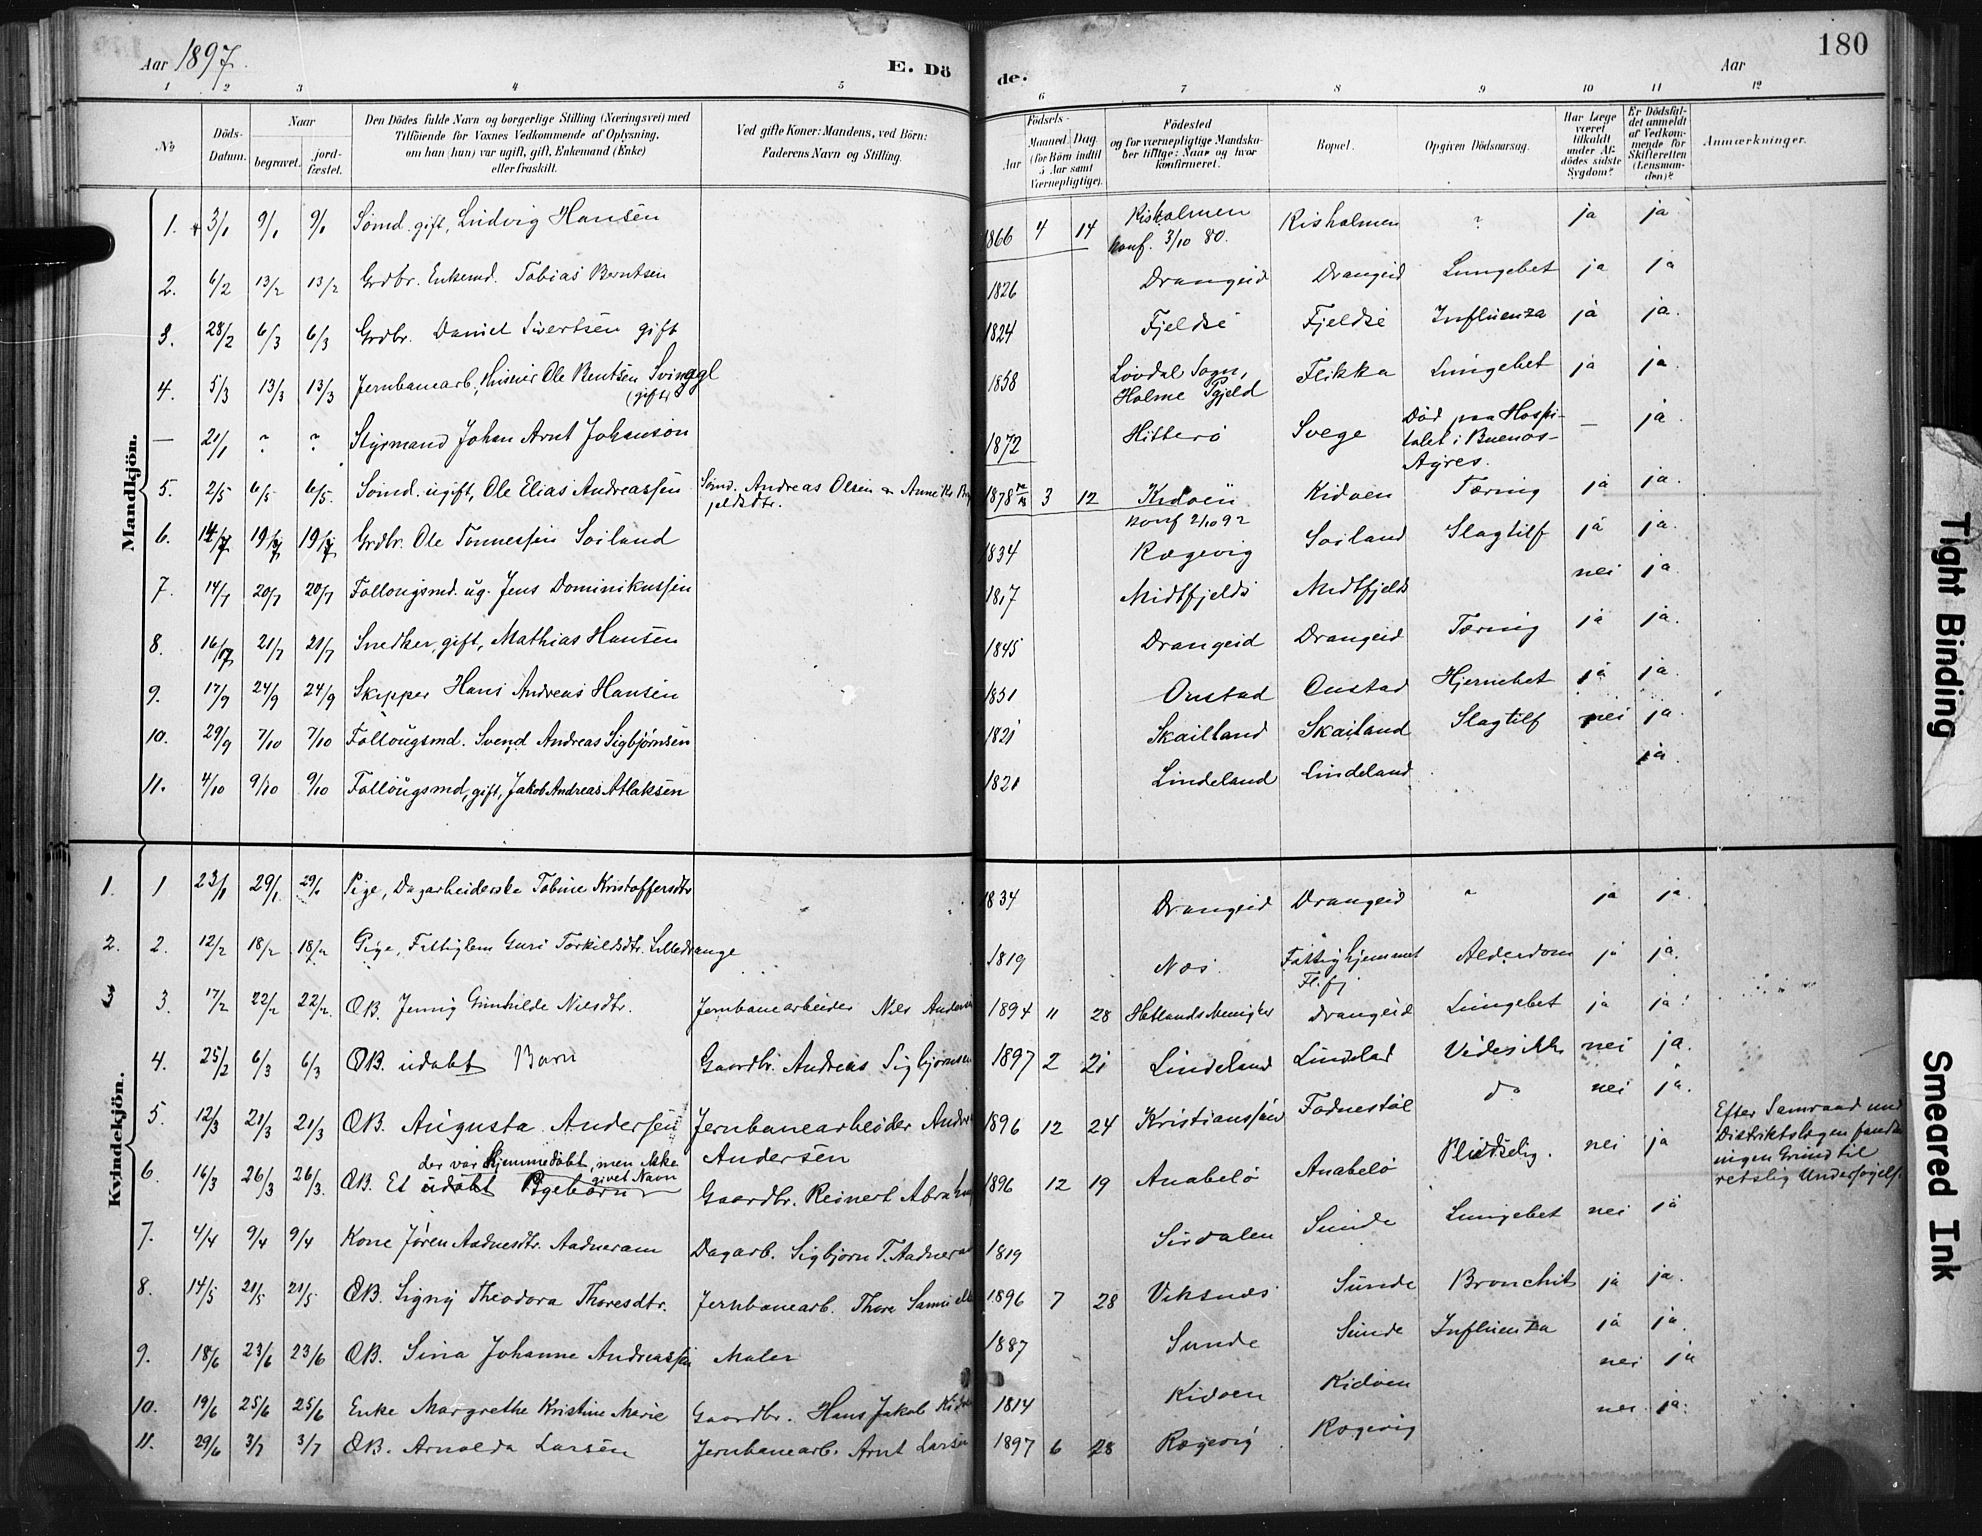 Aar 1897.
E. Dö
de.
Aar
180
1 2 3 4 5 6 7 8 9 10 11 12
No
Döds-Datum.
Naar
begravet.
jord-fæstet.
Den Dödes fulde Navn og borgerlige Stilling (Næringsvei) med
Tilföiende for Voxnes Vedkommende af Oplysning,
om han (hun) var ugift, gift, Enkemand (Enke)
eller fraskilt.
Ved gifte Koner: Mandens, ved Börn:
Faderens Navn og Stilling.
Födsels-
Aar
Maaned. Dag.
(for Börn indtil 5 Aar samt Værnepligtige).
Födested
og for værnepligtige Mandskaber tillige: Naar og hvor konfirmeret.
Bopæl.
Opgiven Dödsaarsag.
Har Læge været tilkaldt under Afdödes sidste Sygdom?
Er Dödsfaldet anmeldt af Vedkommende for Skifteretten (Lensmanden)?
Anmærkninger.
Mandkjön.
1. 3/1 9/1 9/1 Sømd. gift, Ludvig Hansen 1866 4 14 Risholmen Konf. 3/10 80. Risholmen ? ja ja
2. 6/2 13/2 13/2 Grdbr. Enkemd. Tobias Berntsen 1826 Drangeid Drangeid Lungebet ja ja
3. 28/2 6/3 6/3 Grdbr. Daniel Sivertsen gift 1824 Fjeldse Fjeldse Influenza ja ja.
4. 5/3 13/3 13/3 Jernbanearb, Huseier Ole Bentsen (gift) 1858 Løvdal Sogn, Holme Pgjeld Flikka Lungebet ja ja.
— 21/1 ? ? Styrmand Johan Arnt Johanson 1872 Hitterø Svege Død paa Hospitalet i Buenos-Ayres. — ja.
5. 2/5 6/5 6/5. Sømd. ugift, Ole Elias Andreassen Sømd. Andreas Olsen 1878 3 12 Kidøen Konf 2/10 92 Kidøen Tæring ja ja.
6. 14/7 19/7 19/7 Grdbr. Ole Tønnessen Soiland 1834 Rægevig Soiland Slagtilf ja ja.
7. 14/7 20/7 20/7 Follougsmd. ug. Jens Dominikussen 1817 Midtfjelds Midtfjelds nei ja.
8. 16/7 21/7 21/7 Snedker, gift, Mathias Hansen 1845 Drangeid Drangeid Tæring ja ja.
9. 17/9 24/9 24/9 Skipper Hans Andreas Hansen 1851 Onstad Onstad Hjernebet ja ja.
10. 29/9 7/10 7/10 Follougsmd. Svend Andreas Sigbjørnsen 1821 Skailand Skailand Slagtilf nei ja.
11. 4/10 9/10 9/10 Follougsmd, gift, Jakob Andreas Atlaksen 1821 Lindeland Lindeland ja.
Kvindekjön.
1. 1 23/1 29/1 29/1 Pige, Dagarbeiderske Tobine Kristoffersdtr 1834 Drangeid Drangeid ja ja.
2. 2. 12/2 18/2 18/2 Pige, Fattiglem Guri Torkildsdtr. Lilledrange 1819 Næs Fattighjemmet Alderdom ja ja.
3 3. 17/2 22/2 22/2 ÆB. Jenny Gunhilde Nilsdtr. Jernbanearbeider Nils 1894 11 28 Drangeid Lungebet ja ja.
4. 25/2 6/3 6/3 ÆB. udøbt Barn Gaardbr. Andreas Sigbjørnsen 1897 2 21 Lindeland Lindelad Vides ikke nei ja.
5. 12/3 21/3 21/3 ÆB. Augusta Andersen Jernbanearbeider Andersen 1896 12 24 Kristianssand Fodnestøl do nei ja.
6. 16/3 26/3 26/3. ÆB. Et udøbt Pigebarn der var hjemmedøbt, men ikke givet Navn Gaardbr. Reinert 1896 12 19 Anabelø Anabelø Pludselig. nei ja
Efter Samraad med
Distriktslægen fandtes
ingen Grund til
retslig Undersøgelse
7. 4/4 9/4 9/4 Kone Jøren Aadnesdtr. Aadneram Dagarb. Sigbjørn T. Aadneram 1819 Sirdalen Sunde Lungebet nei ja
8. 14/5 21/5 21/5. ÆB. Signy Theodora Thoresdtr. Jernbanearb. Thore 1896 7 28 Viksnæs Sunde Bronchit ja ja.
9. 18/6 23/6 23/6 ÆB. Sina Johanne Andreassen Maler 1887 Sunde Sunde Influenza ja ja.
10. 19/6 25/6 25/6 Enke Margrethe Kristine Marie Gaardbr. Hans Jakob 1814 Kidøen Kidøen nei ja
11. 29/6 3/7 3/7 ÆB. Arnolda Larsen Jernbanearb. Arnt Larsen 1897 6 28 Rægevig Rægevig nei ja.
Tight Binding
Smeared Ink